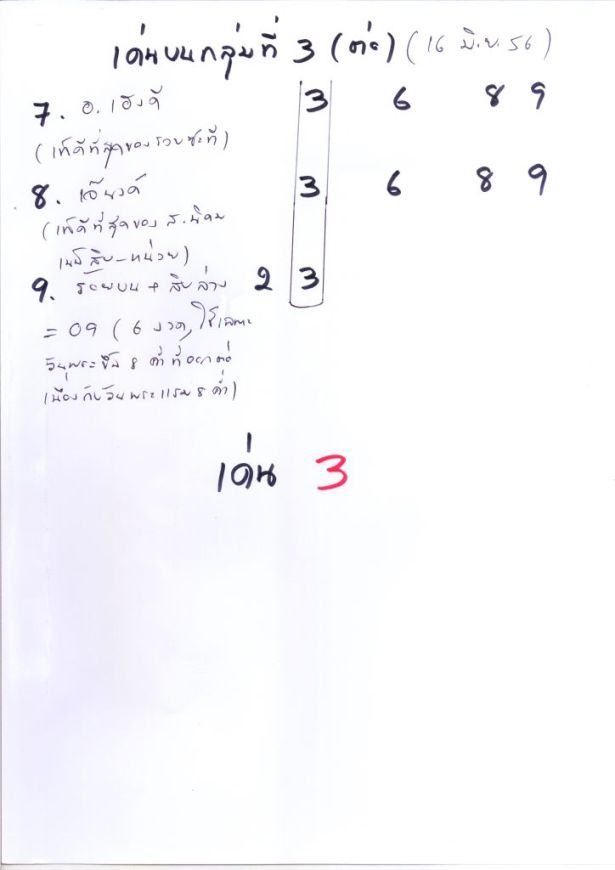 เด่นบนกลุ่มที่ 3 (ต่อ) (16 มิ.ย. 56)
7. อ. เฮงดี 3 6 8 9
(เท็ดีที่สุดของรวยชะที)
8. 3 6 8 9
(เท็ดีที่สุดของ ส.นิคม
เน้นสิบ-หน่วย)
9. ร้อยบน + สิบล่าง 2 3
= 09 (6 งวด, ใช้เฉพาะ
วันพระขึ้น 8 ค่ำ ที่ออกต่อ
เนื่องกับวันพระแรม 8 ค่ำ)
เด่น 3